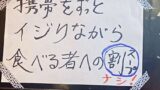 携帯をずっと
イジりながら
食べる者への割スープ
ナシ!